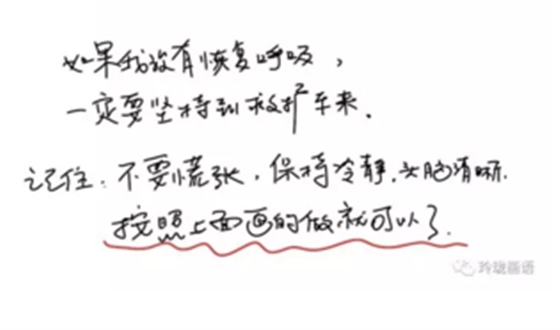 如果我没有恢复呼吸，
一定要坚持到救护车来.
记住：不要慌张，保持冷静.头脑清晰.
按照上面画的做就可以了.
玲珑画语